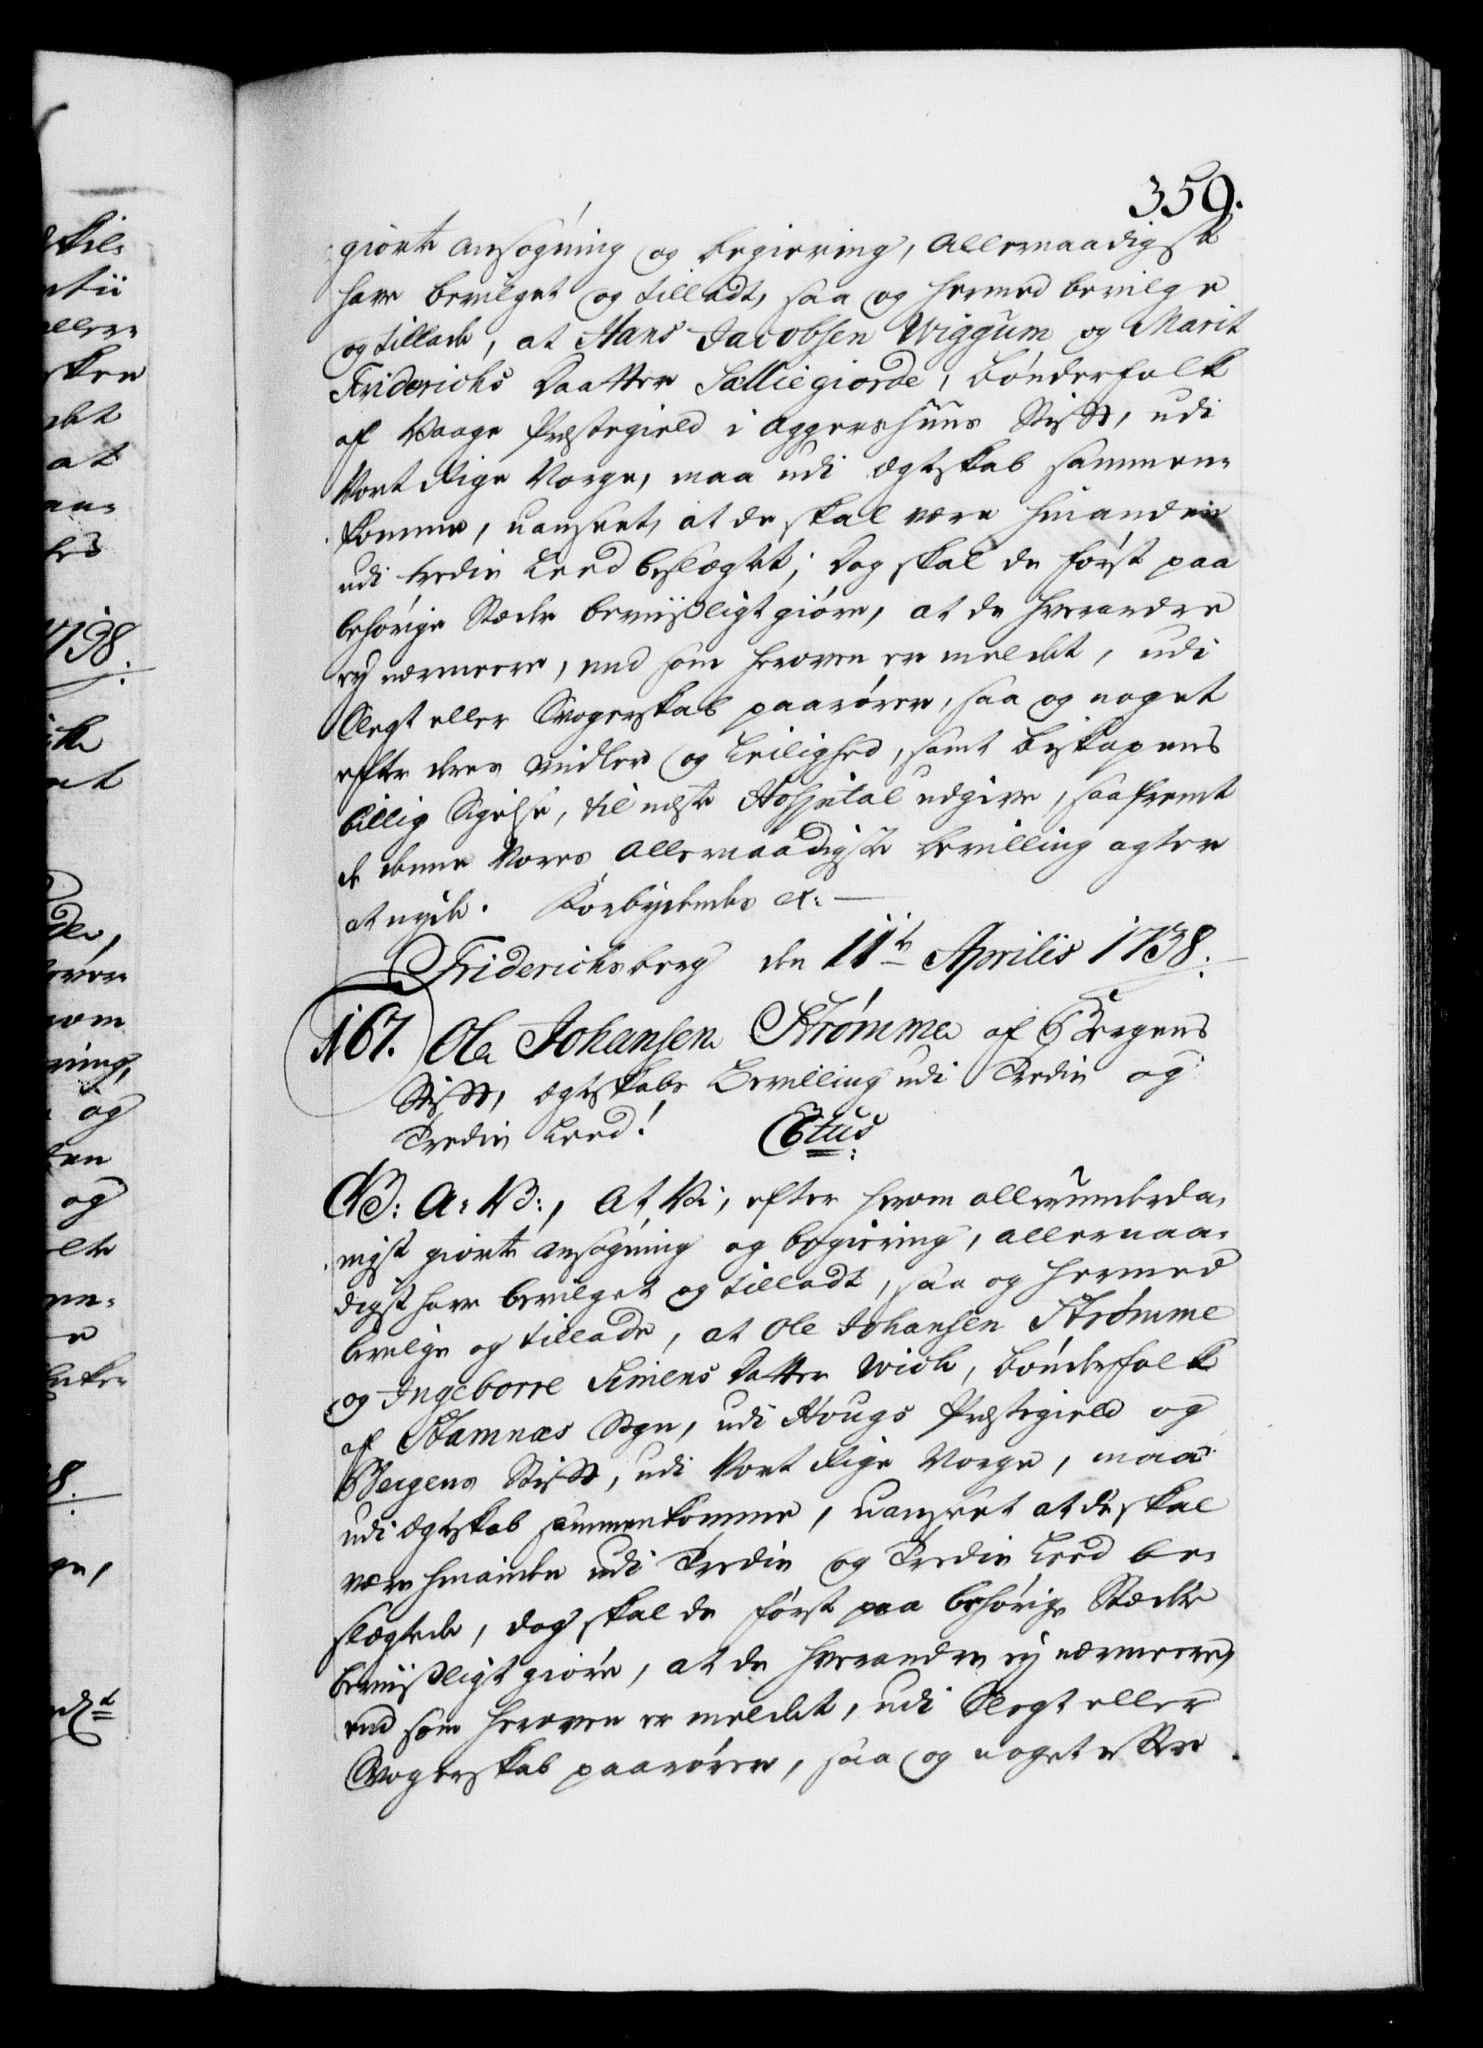 359.
giorte ansøgning og begiering, allernaadigst
have bevilget og tilladt, saa og hermed bevilge
og tillade, at Hans Jacobsen Wiggum og Marit
Friderichs Daatter Sælliegiorde, bønderfolk
af Vaage Præstegield i Aggershuus Stift, udi
Vort Rige Norge, maa udi Ægteskab sammen-
komme, uanseet, at de skal være hinanden
udi tredie Leed beslægtet; dog skal de først paa
behørige Stæder beviisligt giøre, at de hverandre
ej nærmere, end som heroven er meldet, udi
Slegt eller Svogerskab paarører, saa og noget
efter deres Midler og Leilighed, samt Biskopens
billig Sigelse, til næste Hospital udgive, saafremt
de denne Vores allernaadigste bevilling agter
at nyde. Forbydendes etc:
Friderichsberg den 11te Aprilis 1738.
167. Ole Johansen Strømme af Bergens
Stift, Ægteskabs Bevilling udi Tredie og
Tredie Leed! Ctus
G: A: V:, At Vi, efter herom allerunderda-
nigst giorte ansøgning og begiering, allernaa-
digst have bevilget og tilladt, saa og hermed
bevilge og tillade, at Ole Johansen Strømme
og Ingeborre Simens Datter Wich, bønderfolk
af Stamnæs Sogn, udi Hougs Præstegield og
Bergens Stift, udi Vort Rige Norge, maa
udi Ægteskab sammenkomme, uanseet at de skal
være hinanden udi Tredie og Tredie Leed be-
slægtede, dog skal de først paa behørige Stæder
beviisligt giøre, at de hverandre ej nærmere,
end som heroven er meldet, udi Slegt eller
Svogerskab paarører, saa og noget efter